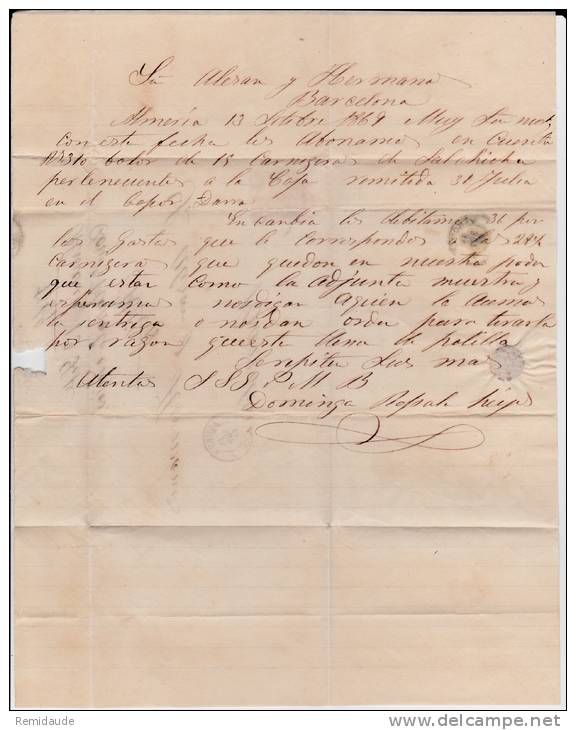 Sres Alesan y Hermano
Barcelona
Almeria 13 Octbre 1869 Muy Sres nros
con este fecha les Abonamos en Cuenta
valor de 15 Carnizera de Salchicha
pertenecientes a la Caja remitida 31 Julio
en el Bapor Darra
En canbia les debitamos 36 por
los gastos que le Corresponden a las 284
Carnizera que quedon en nuestra poder
que estan como la adjunta muestra y
esperamos nos digan aquien le
la entrega o nos dan orden para tirarla
por razon que este llena de polilla
Se repiten Sus mas
Atentos S S Q B S M B
Dominga Hijo
Remidaude
delcampe.net